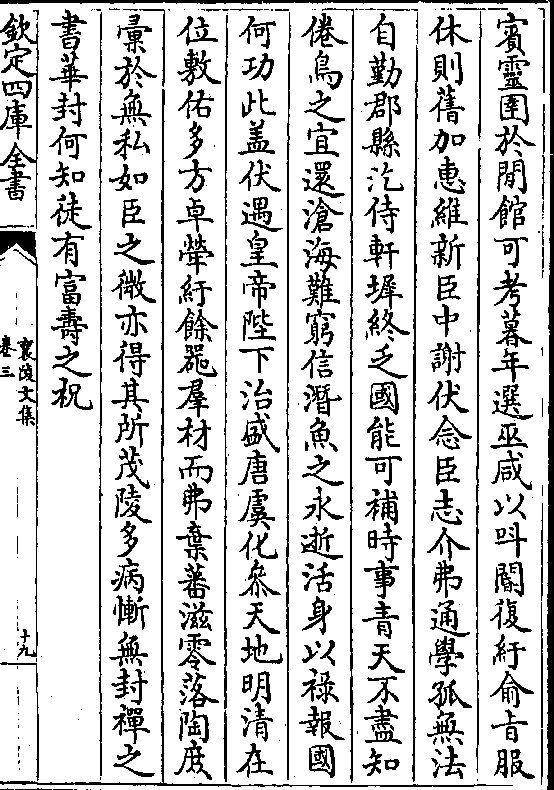 賓靈囿於閒館可考暮年選巫咸以呌閽復紆俞㫖服
休則舊加惠維新臣中謝伏念臣志介弗通學孤無法
自勤郡縣汔侍軒墀終乏國能可補時事青天不盡知
倦鳥之宜還滄海難窮信潛魚之永逝活身以祿報國
何功此盖伏遇皇帝陛下治盛唐虞化參天地明清在
位敷佑多方卓犖紆餘器羣材而弗棄蕃滋零落陶庶
彚於無私如臣之微亦得其所茂陵多病慚無封禪之
書華封何知徒有富壽之祝
欽定四庫全書
襄陵文集
卷三
十九